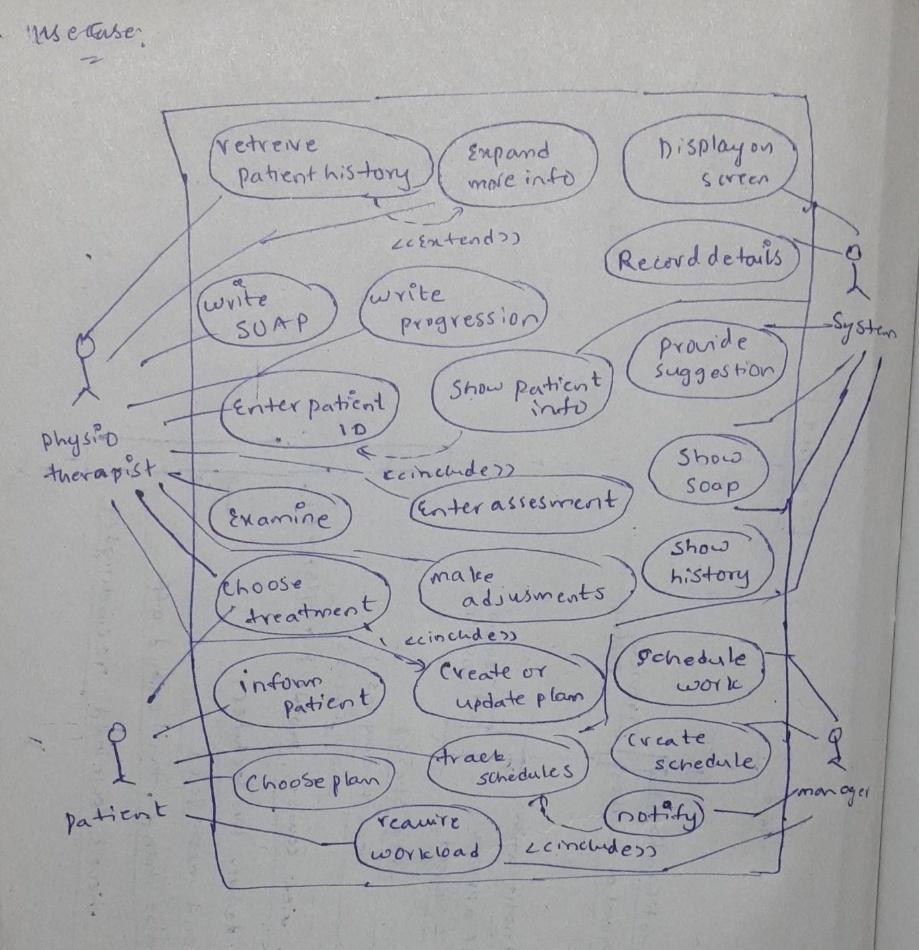 usecase:
retreive
patient history
Expand
more info
Display on
screen
<<Extend>>
Record details
write
SOAP
write
progression
System
provide
suggestion
Enter patient
ID
Show patient
info
physio
therapist
<<include>>
Show
soap
Enter assesment
Examine
show
history
choose
treatment
make
adjusments
<<include>>
Create or
update plan
schedule
work
inform
patient
track
schedules
Create
schedule
Choose plan
manager
patient
notify
require
workload
<<include>>